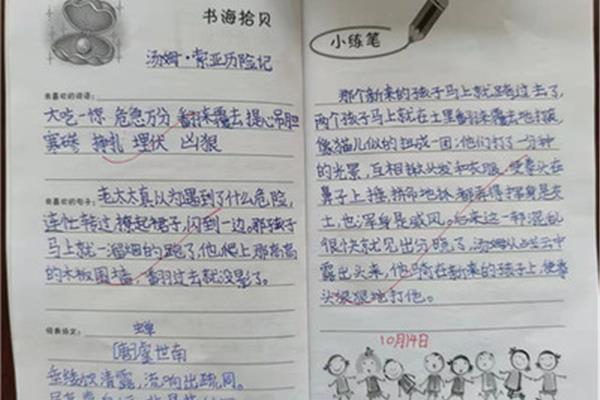 书海拾贝
汤姆·索亚历险记
我喜欢的词语:
大吃一惊 危急万分 翻来覆去 提心吊胆
寒碜 挣扎 埋伏 凶狠
我喜欢的句子: 老太太真认为遇到了什么危险,
连忙转过,撩起裙子,闪到一边。那孩子
马上就一溜烟的跑了,他爬上那高高
的木板围墙,翻过去就没影了。
经典诗文: 蝉
[唐]虞世南
垂緌饮清露,流响出疏桐。
小练笔
那个新来的孩子马上就跑过去了,
两个孩子马上就在土里翻来覆去地打滚
像猫儿似的扭成一团;他们打了一分钟
的光景,互相揪头发和衣服,使拳头在
鼻子上捶,拼命地抓,都弄得浑身是灰
土,也浑身是威风。后来这一部混乱
很快就见出分晓了,汤姆从战云中
露出头来,他骑在新来的孩子上,使拳
头狠狠地打他。
10月14日